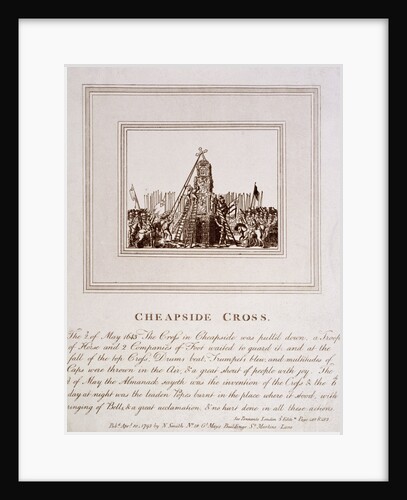 CHEAPSIDE CROSS.
The 3d of May 1643 The Cross in Cheapside was pulled down, a Troop
of Horse and 2 Companies of Foot waited to guard it and at the
fall of the top Cross Drums beat, Trumpets blew, and multitudes of
Caps were thrown in the Air, & a great shout of people with joy. The
3d of May the Almanack sayeth was the invention of the Cross & the 6
day at night was the leaden Popes burnt in the place where it stood, with
ringing of Bells & a great acclamation & no hurt done in all these actions
See Pennants London
Pubd. Apr. 10, 1793 by N. Smith No. 18 Gt. Mays Buildings St. Martins Lane